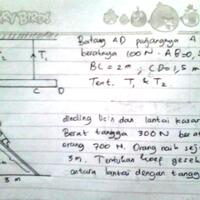 RY BIRDS
Batang AD panjangnya 4
beratnya 100 N. AB=0,
BC = 2 m, CD = 1,5 m
Tent. T₁ & T₂
T₁
C D
dinding licin dan lantai kasar
Berat tangga 300 N berat
orang 700 N. Orang naik sej
3m. Tentukan koef gesek
antara lantai dengan tangga
3 m